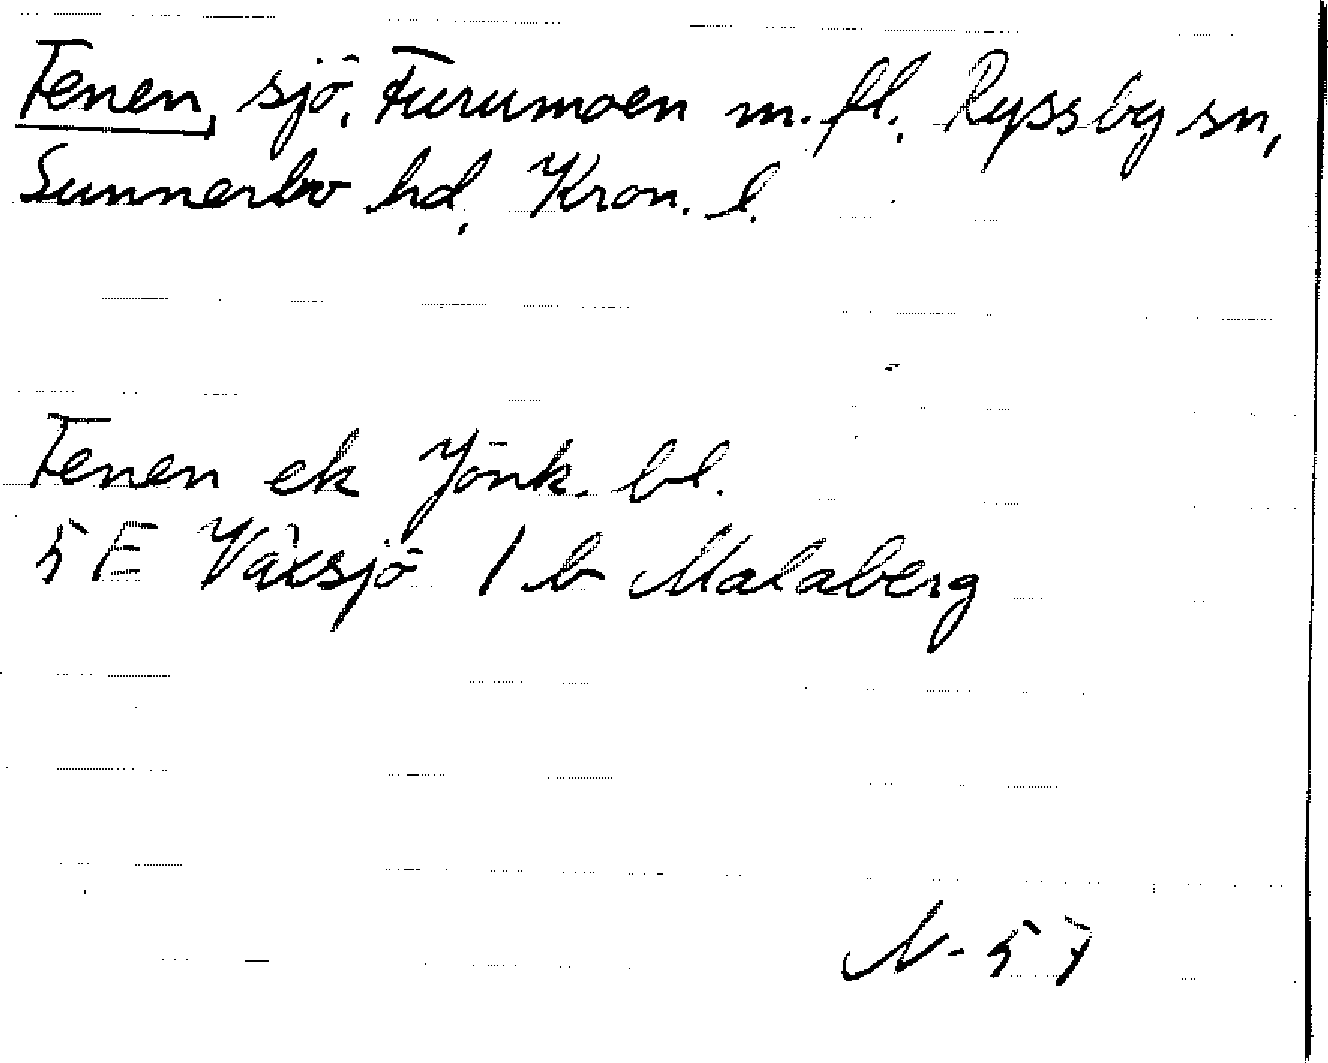 Fenen, sjö, Furumoen m. fl. Ryssby sn,
Sunnerbo hd, Kron. l.
Fenen ek Jönk. bl.
5 E Växsjö 1 b Malaberg
N-57